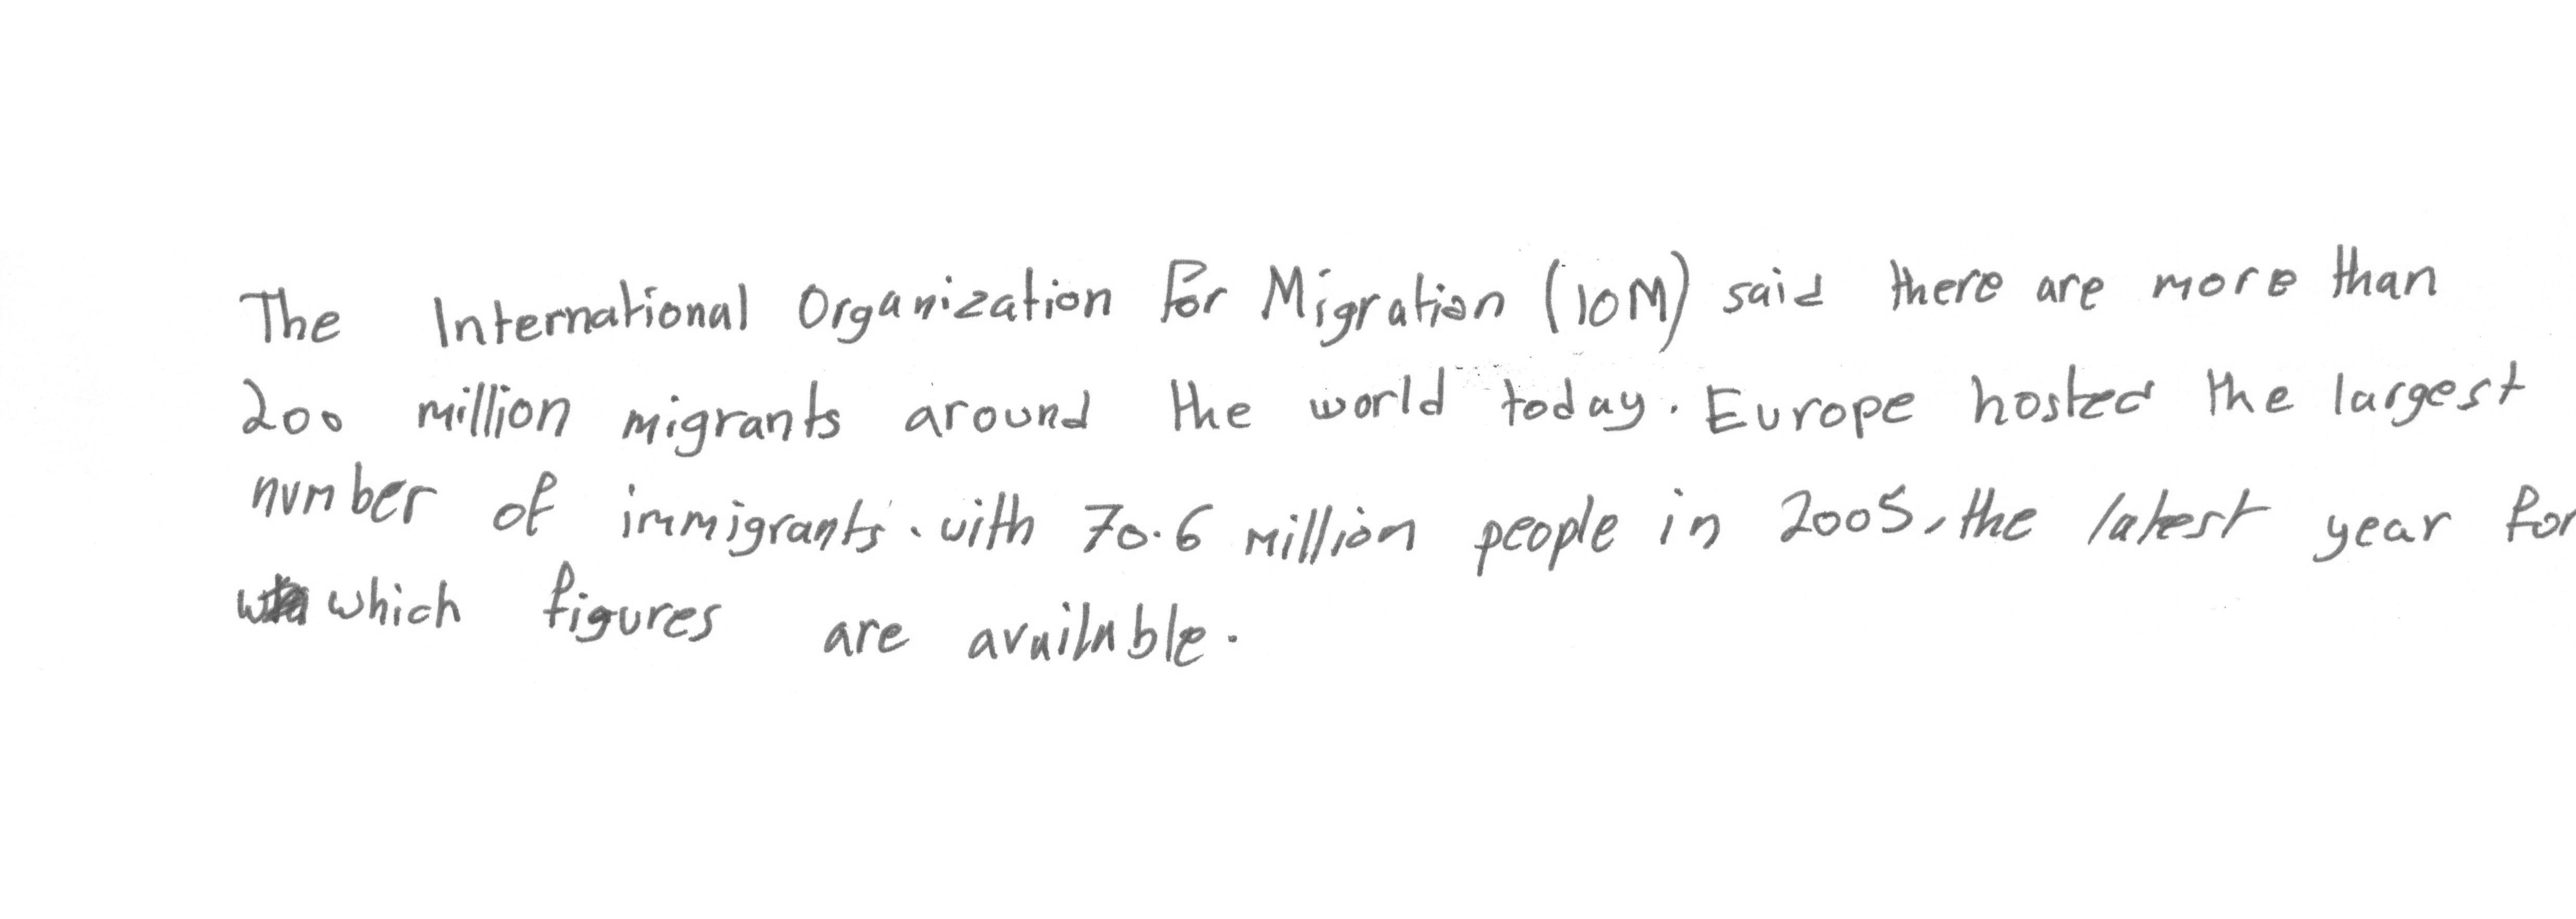 The International Organization for Migration (IOM) said there are more than
200 million migrants around the world today. Europe hosted the largest
number of immigrants, with 70.6 million people in 2005, the latest year for
which figures are available.